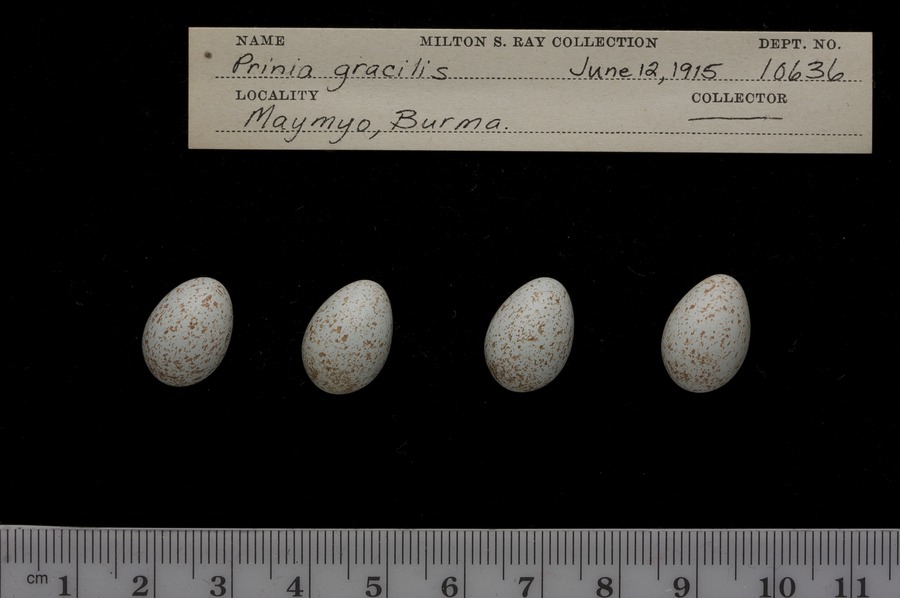 NAME MILTON S. RAY COLLECTION DEPT. NO.
Prinia gracilis June 12, 1915 10636
LOCALITY COLLECTOR
Maymyo, Burma.
cm 1 2 3 4 5 6 7 8 9 10 11